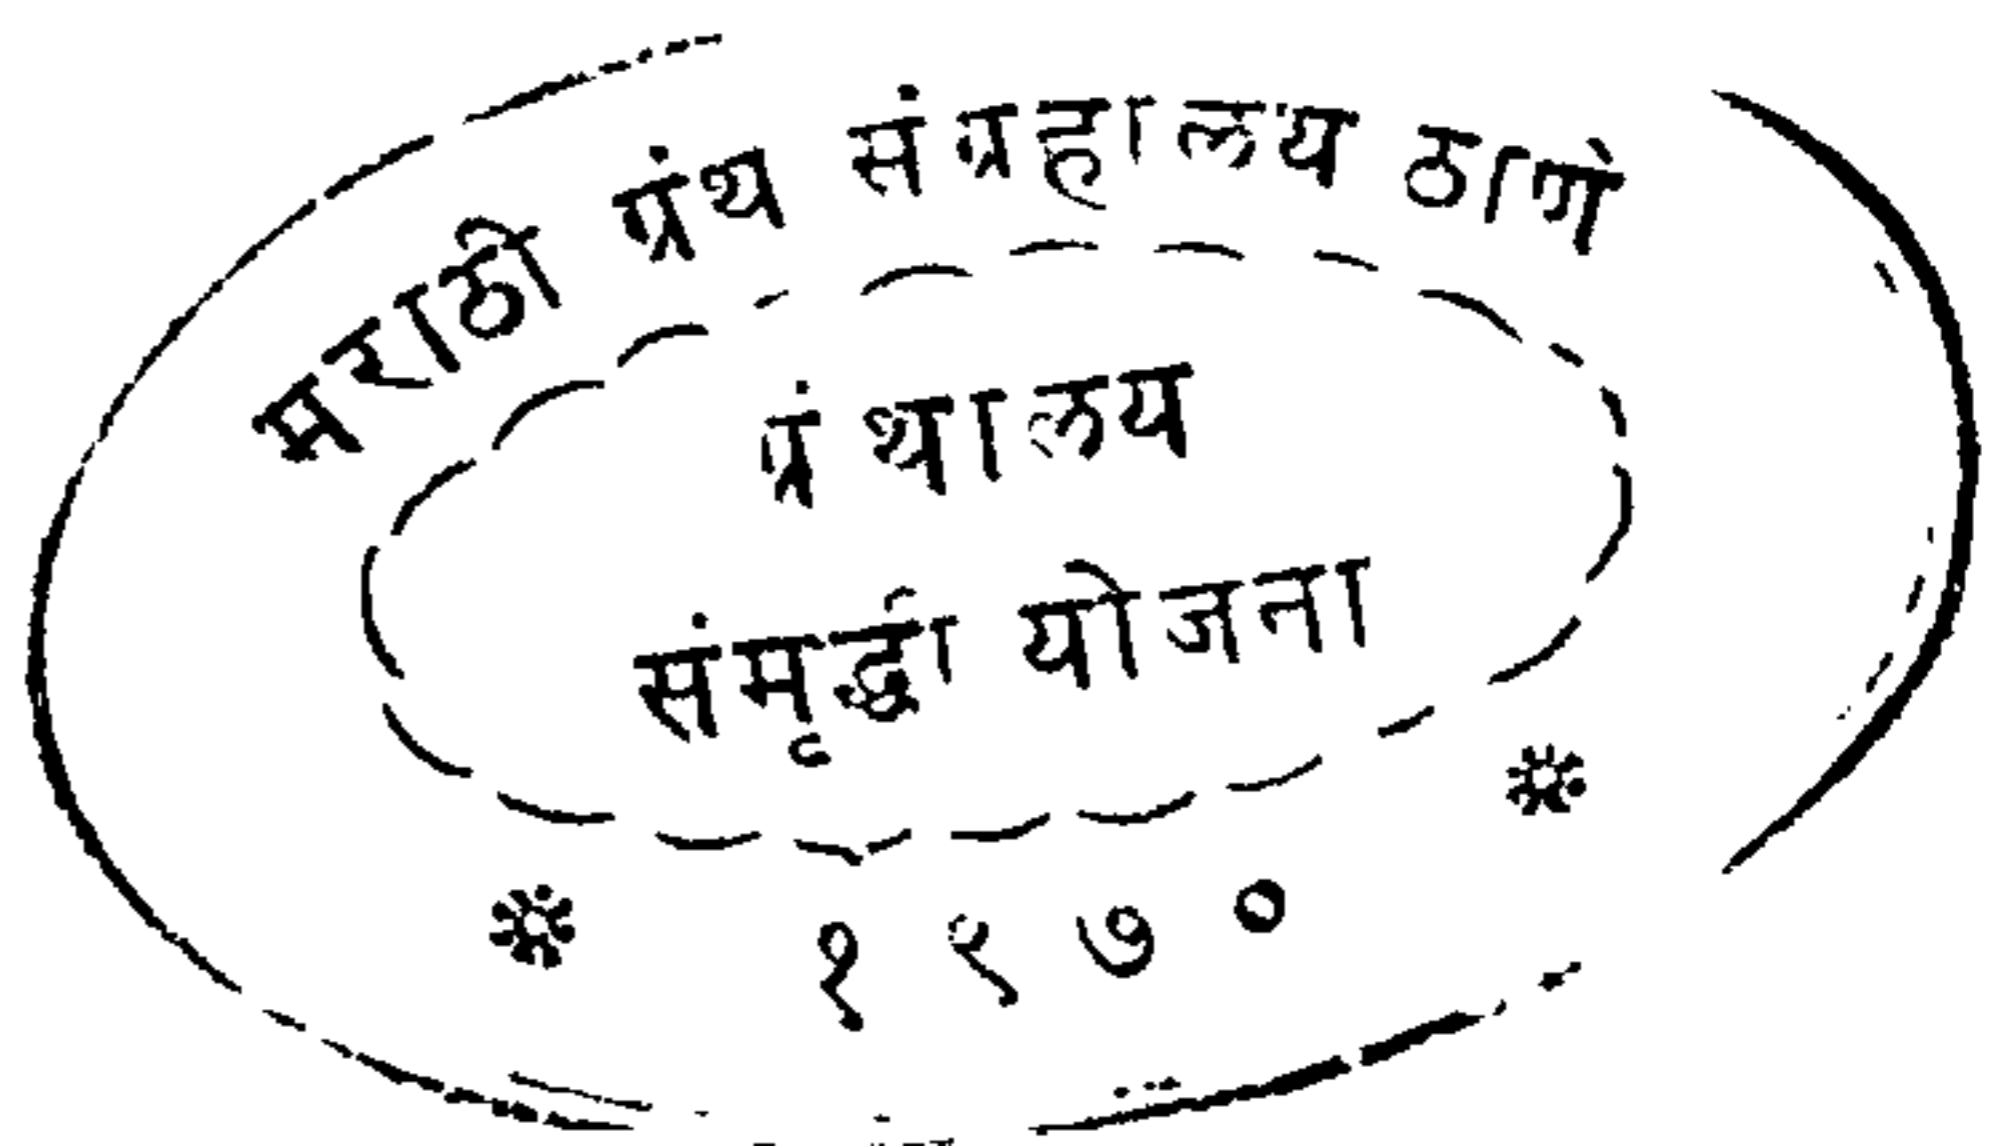 मराठी ग्रंथ संग्रहालय ठाणे
ग्रंथालय
संमृर्द्धा योजना
१९७०